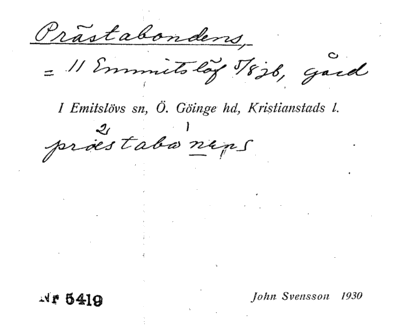 Prästabondens,
= 11 Emmitslöf 5/8 jb, gård
I Emitslövs sn, Ö. Göinge hd, Kristianstads l.
2 1
præstabonens
Nr 5419
John Svensson 1930